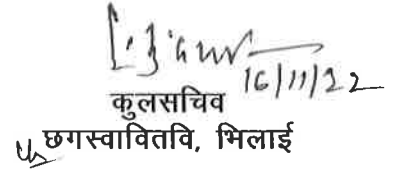 16/11/22
कुलसचिव
छगस्वावितवि, भिलाई